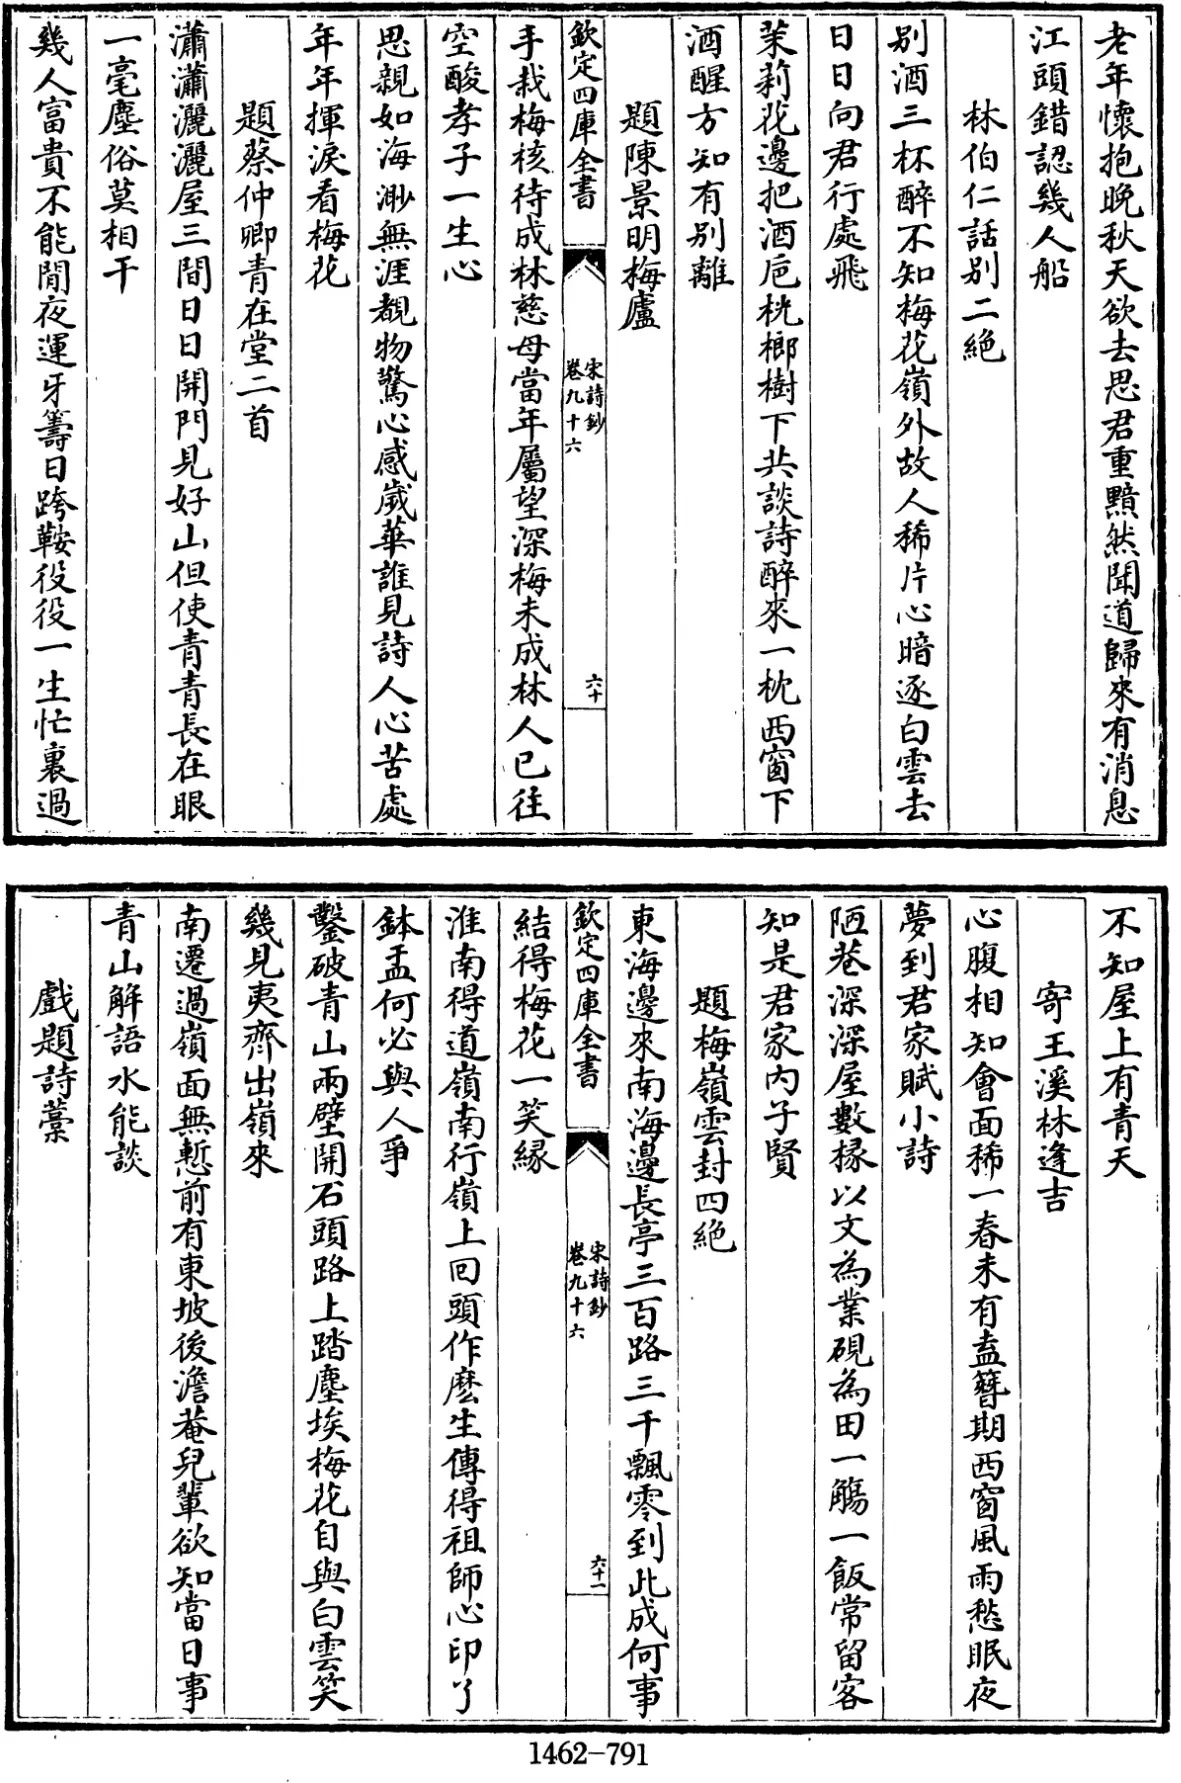 老年懷抱晚秋天欲去思君重黯然聞道歸來有消息
江頭錯認幾人船
林伯仁話別二絶
别酒三杯醉不知梅花嶺外故人稀片心暗逐白雲去
日日向君行處飛
茉莉花邊把酒巵桄榔樹下共談詩醉來一枕西窗下
酒醒方知有别離
題陳景明梅廬
欽定四庫全書
宋詩鈔
卷九十六
六十
手栽梅核待成林慈母當年屬望深梅未成林人已往
空酸孝子一生心
思親如海渺無涯覩物驚心感歲華誰見詩人心苦處
年年揮淚看梅花
題蔡仲卿青在堂二首
瀟瀟灑灑屋三間日日開門見好山但使青青長在眼
一毫塵俗莫相干
幾人富貴不能閒夜運牙籌日跨鞍役役一生忙裏過
不知屋上有青天
寄王溪林逢吉
心腹相知會面稀一春未有盍簪期西窗風雨愁眠夜
夢到君家賦小詩
陋巷深深屋數椽以文為業硯為田一觴一飯常留客
知是君家内子賢
題梅嶺雲封四絶
東海邊來南海邊長亭三百路三千飄零到此成何事
欽定四庫全書
宋詩鈔
卷九十六
六十一
結得梅花一笑緣
淮南得道嶺南行嶺上回頭作麽生傳得祖師心印了
鉢盂何必與人爭
鑿破青山兩壁開石頭路上踏塵埃梅花自與白雲笑
幾見夷齊出嶺來
南遷過嶺面無慙前有東坡後澹菴兒輩欲知當日事
青山解語水能談
戲題詩藁
1462-791